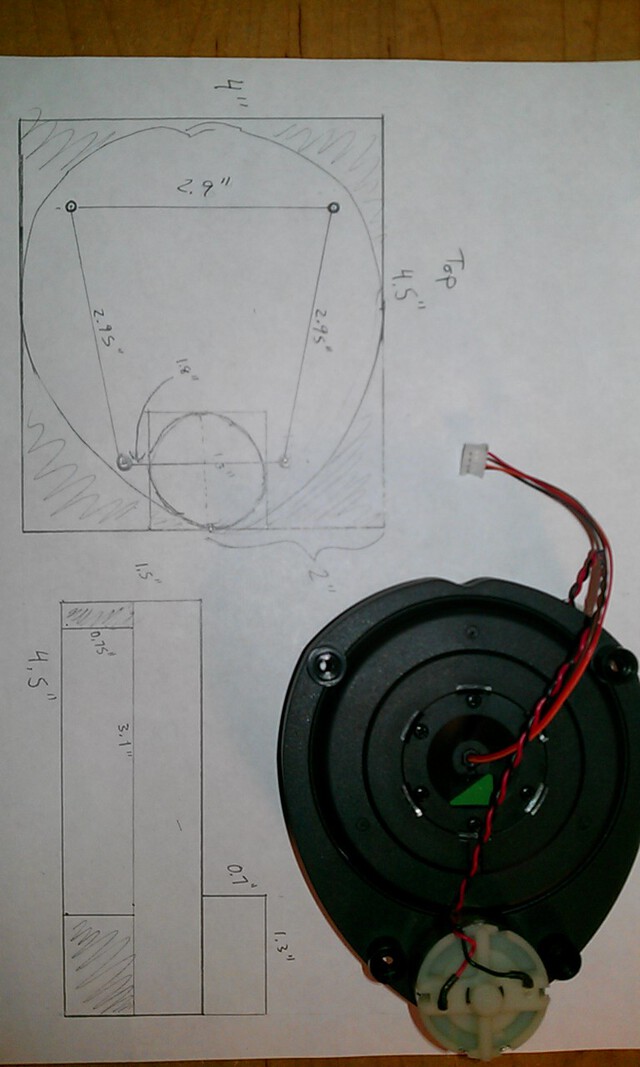 4"
2.9"
Top
4.5"
2.95"
2.95"
1.8"
2"
1.5"
0.75"
4.5"
3.1"
0.7"
1.3"